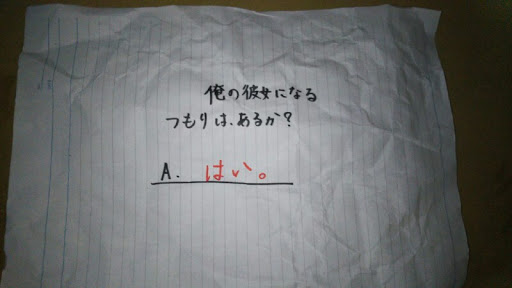 俺の彼女になる
つもりは、あるか?
A. はい。